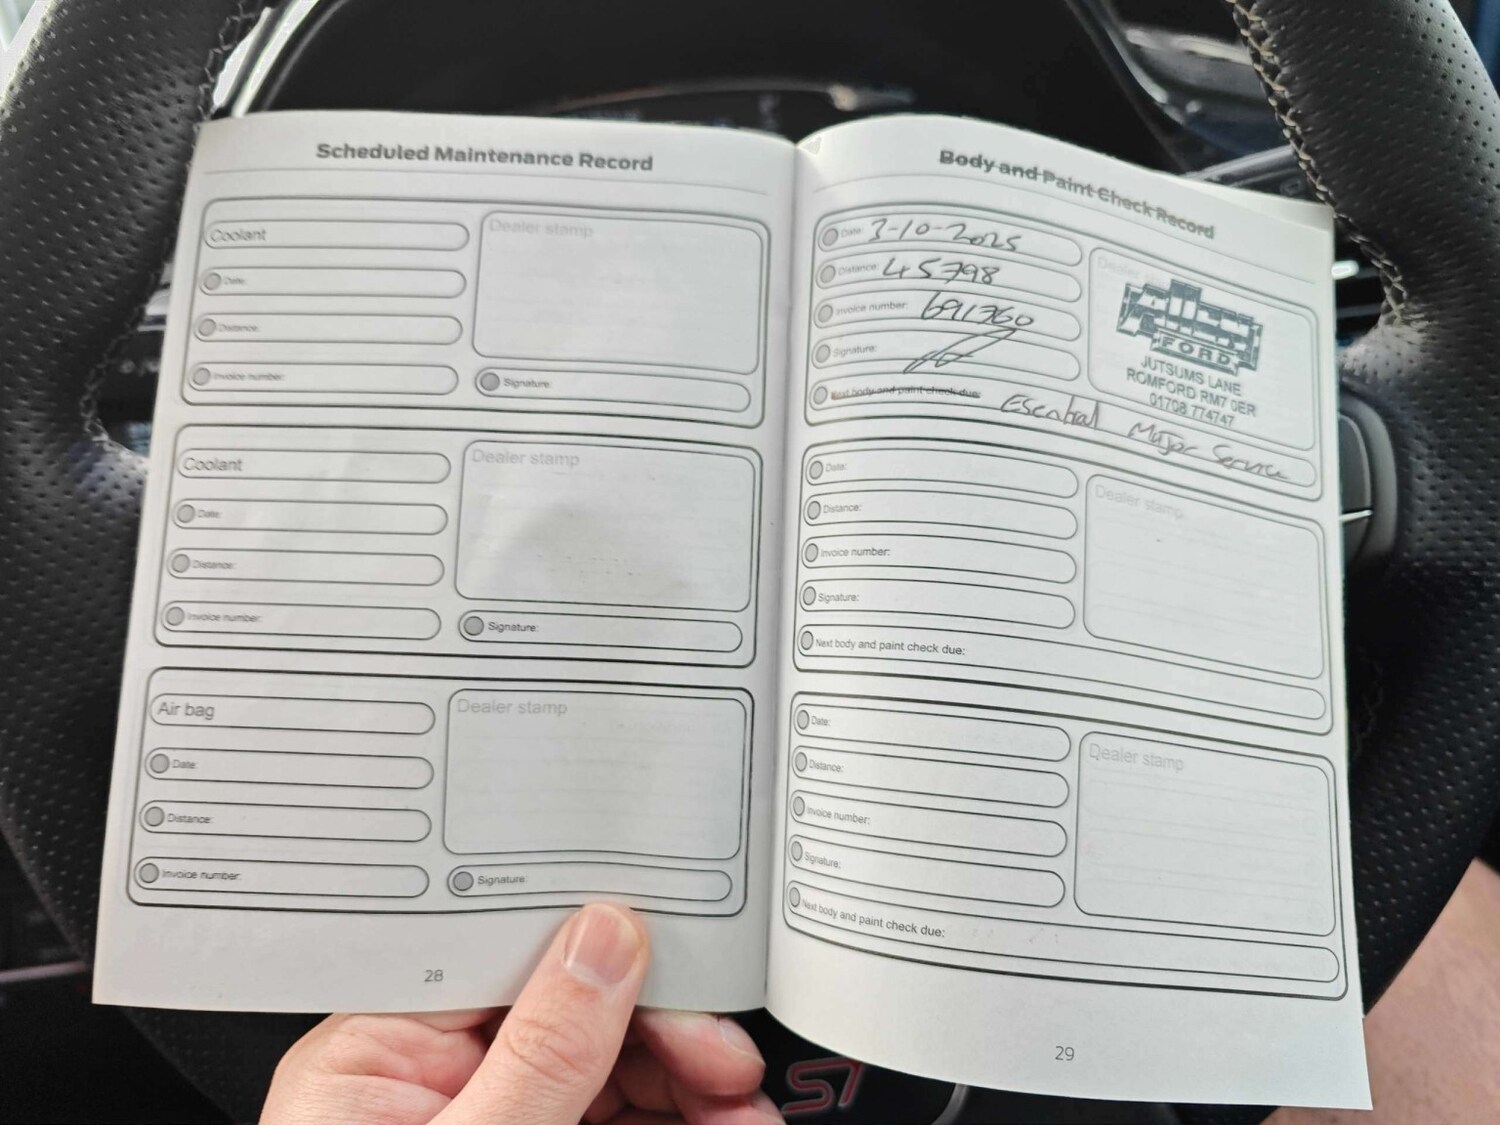 Scheduled Maintenance Record
Coolant
Dealer stamp
Date:
Distance:
Invoice number:
Signature:
Coolant
Dealer stamp
Date:
Distance:
Invoice number:
Signature:
Air bag
Dealer stamp
Date:
Distance:
Invoice number:
Signature:
28
Body and Paint Check Record
Date: 3-10-2025
Distance: 45798
Invoice number: 691360
Signature:
Next body and paint check due: Esential Major Service
Dealer
FORD
JUTSUMS LANE
ROMFORD RM7 0ER
01708 774747
Date:
Dealer stamp
Distance:
Invoice number:
Signature:
Next body and paint check due:
Date:
Dealer stamp
Distance:
Invoice number:
Signature:
Next body and paint check due:
29
ST